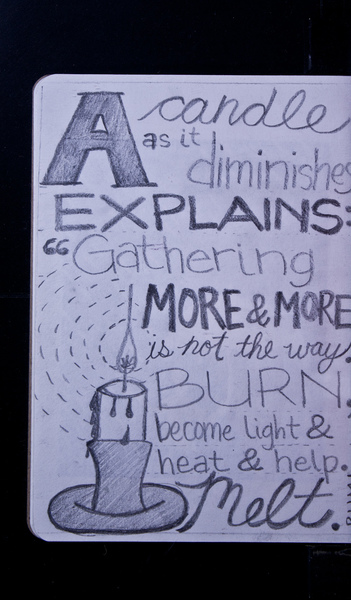 A candle
as it
diminishes
EXPLAINS:
“Gathering
MORE & MORE
is not the way.
BURN.
become light &
heat & help.
Melt.